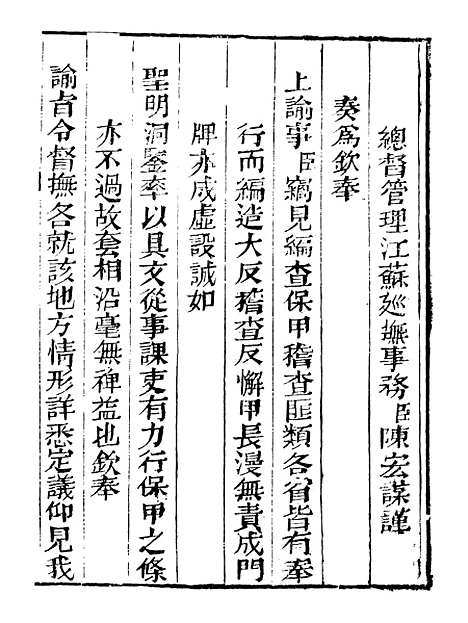 總督管理江蘇廵撫事務臣陳宏謀謹
奏爲欽奉
上諭事臣竊見編查保甲稽查匪類各省皆有奉
行而編造大反稽查反懈甲長漫無責成門
牌亦成虛設誠如
聖明洞鑒率以具文從事課吏有力行保甲之條
亦不過故套相沿毫無裨益也欽奉
諭旨令督撫各就該地方情形詳悉定議仰見我